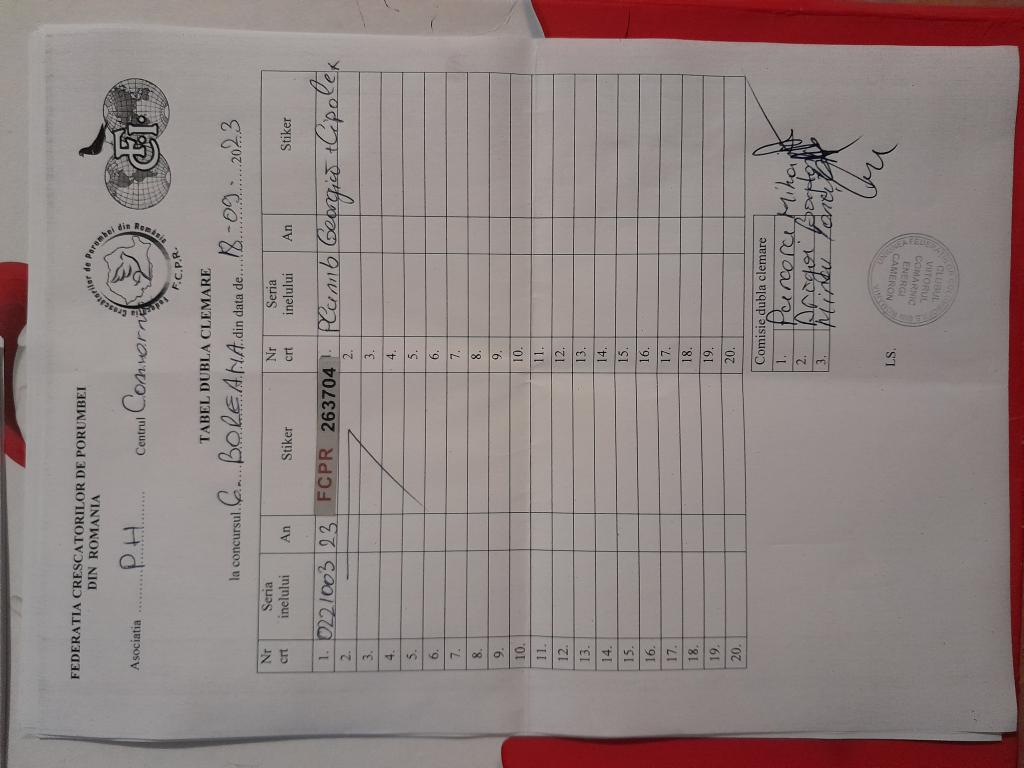 FEDERATIA CRESCATORILOR DE PORUMBEI
DIN ROMANIA
Federatia Crescatorilor de Porumbei din România
F.C.P.R.
Asociatia ........PH........ Centrul
TABEL DUBLA CLEMARE
la concursul BOREANA din data de -09- 2023
Nr crt Seria inelului An Stiker Nr crt Seria inelului An Stiker
1. 0221003 23 FCPR 263704 1. Plumb Georgió + Cipolex
2. 2.
3. 3.
4. 4.
5. 5.
6. 6.
7. 7.
8. 8.
9. 9.
10. 10.
11. 11.
12. 12.
13. 13.
14. 14.
15. 15.
16. 16.
17. 17.
18. 18.
19. 19.
20. 20.
Comisie dubla clemare
1. Mihai
2.
3.
LS.
CLUBUL
VIITORUL
COMARNIC
ENERGI
CAMERON